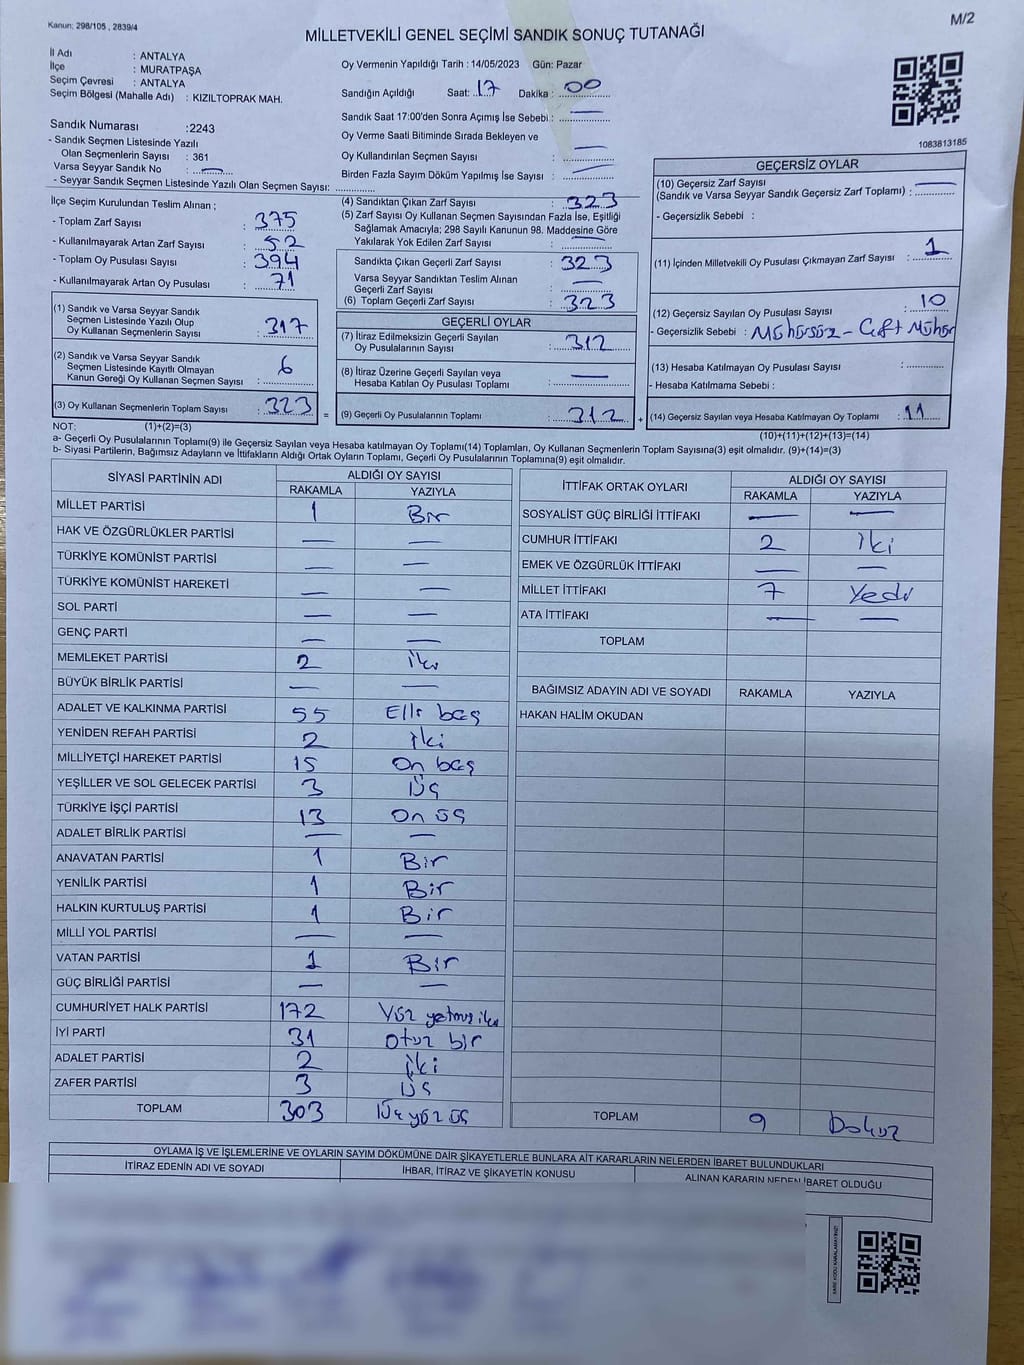 Kanun: 298/105 , 2839/4
M/2
MİLLETVEKİLİ GENEL SEÇİMİ SANDIK SONUÇ TUTANAĞI
İl Adı : ANTALYA
İlçe : MURATPAŞA
Seçim Çevresi : ANTALYA
Seçim Bölgesi (Mahalle Adı) : KIZILTOPRAK MAH.
Sandık Numarası :2243
- Sandık Seçmen Listesinde Yazılı
Olan Seçmenlerin Sayısı : 361
Varsa Seyyar Sandık No : —
- Seyyar Sandık Seçmen Listesinde Yazılı Olan Seçmen Sayısı: ..............
Oy Vermenin Yapıldığı Tarih : 14/05/2023 Gün: Pazar
Sandığın Açıldığı Saat: 17 Dakika : 00
Sandık Saat 17:00'den Sonra Açımış İse Sebebi : —
Oy Verme Saati Bitiminde Sırada Bekleyen ve
Oy Kullandırılan Seçmen Sayısı : —
Birden Fazla Sayım Döküm Yapılmış İse Sayısı : —
1083813185
İlçe Seçim Kurulundan Teslim Alınan ;
- Toplam Zarf Sayısı : 375
- Kullanılmayarak Artan Zarf Sayısı : 52
- Toplam Oy Pusulası Sayısı : 394
- Kullanılmayarak Artan Oy Pusulası : 71
(1) Sandık ve Varsa Seyyar Sandık
Seçmen Listesinde Yazılı Olup
Oy Kullanan Seçmenlerin Sayısı : 317
(2) Sandık ve Varsa Seyyar Sandık
Seçmen Listesinde Kayıtlı Olmayan
Kanun Gereği Oy Kullanan Seçmen Sayısı : 6
(3) Oy Kullanan Seçmenlerin Toplam Sayısı : 323
(4) Sandıktan Çıkan Zarf Sayısı : 323
(5) Zarf Sayısı Oy Kullanan Seçmen Sayısından Fazla İse, Eşitliği
Sağlamak Amacıyla; 298 Sayılı Kanunun 98. Maddesine Göre
Yakılarak Yok Edilen Zarf Sayısı : —
Sandıkta Çıkan Geçerli Zarf Sayısı : 323
Varsa Seyyar Sandıktan Teslim Alınan
Geçerli Zarf Sayısı : —
(6) Toplam Geçerli Zarf Sayısı : 323
GEÇERLİ OYLAR
(7) İtiraz Edilmeksizin Geçerli Sayılan
Oy Pusulalarının Sayısı : 312
(8) İtiraz Üzerine Geçerli Sayılan veya
Hesaba Katılan Oy Pusulası Toplamı : —
= (9) Geçerli Oy Pusulalarının Toplamı : 312
GEÇERSİZ OYLAR
(10) Geçersiz Zarf Sayısı
(Sandık ve Varsa Seyyar Sandık Geçersiz Zarf Toplamı) : —
- Geçersizlik Sebebi :
(11) İçinden Milletvekili Oy Pusulası Çıkmayan Zarf Sayısı : 1
(12) Geçersiz Sayılan Oy Pusulası Sayısı : 10
- Geçersizlik Sebebi : Mühürsüz - Çift Mühür
(13) Hesaba Katılmayan Oy Pusulası Sayısı : ..........
- Hesaba Katılmama Sebebi :
+ (14) Geçersiz Sayılan veya Hesaba Katılmayan Oy Toplamı : 11
NOT: (1)+(2)=(3)
(10)+(11)+(12)+(13)=(14)
a- Geçerli Oy Pusulalarının Toplamı(9) ile Geçersiz Sayılan veya Hesaba katılmayan Oy Toplamı(14) Toplamları, Oy Kullanan Seçmenlerin Toplam Sayısına(3) eşit olmalıdır. (9)+(14)=(3)
b- Siyasi Partilerin, Bağımsız Adayların ve İttifakların Aldığı Ortak Oyların Toplamı, Geçerli Oy Pusulalarının Toplamına(9) eşit olmalıdır.
SİYASİ PARTİNİN ADI ALDIĞI OY SAYISI
RAKAMLA YAZIYLA
MİLLET PARTİSİ 1 Bir
HAK VE ÖZGÜRLÜKLER PARTİSİ — —
TÜRKİYE KOMÜNİST PARTİSİ — —
TÜRKİYE KOMÜNİST HAREKETİ — —
SOL PARTİ — —
GENÇ PARTİ — —
MEMLEKET PARTİSİ 2 iki
BÜYÜK BİRLİK PARTİSİ — —
ADALET VE KALKINMA PARTİSİ 55 Elli beş
YENİDEN REFAH PARTİSİ 2 iki
MİLLİYETÇİ HAREKET PARTİSİ 15 On beş
YEŞİLLER VE SOL GELECEK PARTİSİ 3 Üç
TÜRKİYE İŞÇİ PARTİSİ 13 On üç
ADALET BİRLİK PARTİSİ — —
ANAVATAN PARTİSİ 1 Bir
YENİLİK PARTİSİ 1 Bir
HALKIN KURTULUŞ PARTİSİ 1 Bir
MİLLİ YOL PARTİSİ — —
VATAN PARTİSİ 1 Bir
GÜÇ BİRLİĞİ PARTİSİ — —
CUMHURİYET HALK PARTİSİ 172 Yüz yetmiş iki
İYİ PARTİ 31 Otuz bir
ADALET PARTİSİ 2 iki
ZAFER PARTİSİ 3 Üç
TOPLAM 303 Üç yüz üç
İTTİFAK ORTAK OYLARI ALDIĞI OY SAYISI
RAKAMLA YAZIYLA
SOSYALİST GÜÇ BİRLİĞİ İTTİFAKI — —
CUMHUR İTTİFAKI 2 iki
EMEK VE ÖZGÜRLÜK İTTİFAKI — —
MİLLET İTTİFAKI 7 Yedi
ATA İTTİFAKI — —
TOPLAM
BAĞIMSIZ ADAYIN ADI VE SOYADI RAKAMLA YAZIYLA
HAKAN HALİM OKUDAN
TOPLAM 9 Dokuz
OYLAMA İŞ VE İŞLEMLERİNE VE OYLARIN SAYIM DÖKÜMÜNE DAİR ŞİKAYETLERLE BUNLARA AİT KARARLARIN NELERDEN İBARET BULUNDUKLARI
İTİRAZ EDENİN ADI VE SOYADI İHBAR, İTİRAZ VE ŞİKAYETİN KONUSU ALINAN KARARIN NEDEN İBARET OLDUĞU